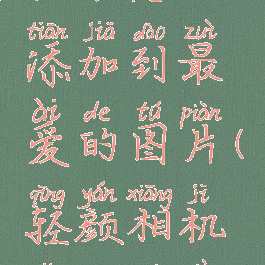 tiān jiā dào zuì
添加到最
ài de tú piàn
爱的图片(
qīng yán xiāng jī
轻颜相机